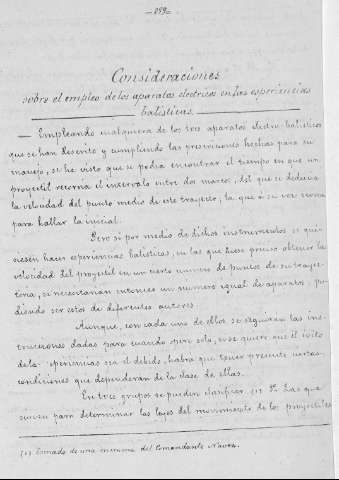 - 259 -
Consideraciones
sobre el empleo de los aparatos electricos en las esperiencias
balisticas.
— Empleando cualquiera de los tres aparatos electro-balisticos
que se han descrito y cumpliendo las prevenciones hechas para su
manejo, se ha visto que se podia encontrar el tiempo en que un
proyectil recorria el intervalo entre dos marcos, del que se deducia
la velocidad del punto medio de este trayecto, la que á su vez servia
para hallar la inicial.
Pero si por medio de dichos instrumentos se qui-
siesen hacer esperiencias balisticas, en las que fuese preciso obtener la
velocidad del proyectil en un cierto numero de puntos de su trayec-
toria, se necesitarian entonces un numero igual de aparatos, pu-
diendo ser estos de diferentes autores.
Aunque, con cada uno de ellos, se seguirian las ins-
trucciones dadas para cuando opera solo, si se quiere que el éxito
de las esperiencias sea el debido, habrá que tener presente ciertas
condiciones que dependerán de la clase de ellas.
En tres grupos se pueden clasificar (1) 1º Las que
sirven para determinar las leyes del movimiento de los proyectiles
(1) Tomado de una memoria del Comandante Navez.